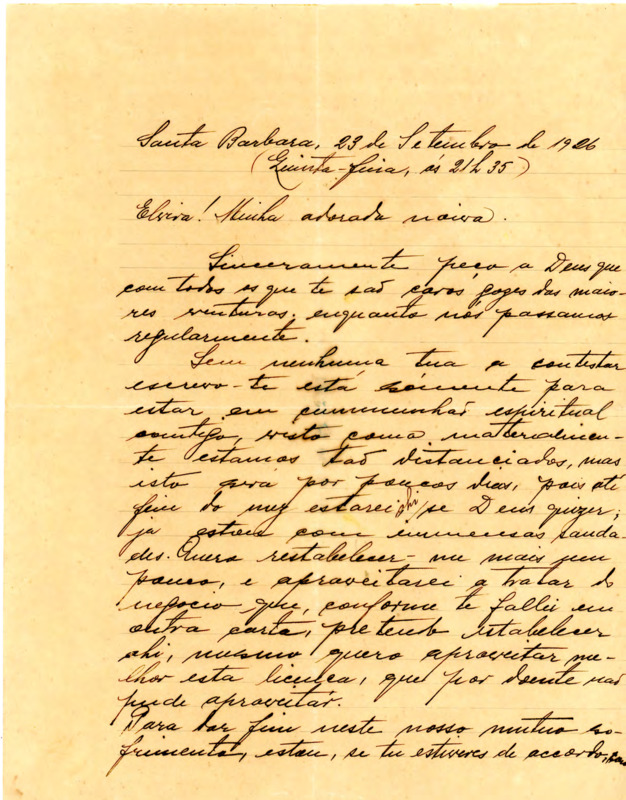 Santa Barbara, 23 de Setembro de 1926
(Quinta-feira, ás 21h 35)
Elvira! Minha adorada noiva.
Sinceramente peço a Deus que
com todos os que te saõ caros gozes das maio-
res venturas, enquanto nós passamos
regularmente.
Sem nenhuma tua a contestar
escrevo-te está sómente para
estar em cummunhaõ espiritual
comtigo, visto como materialmen-
te estamos taõ distanciados, mas
isto será por poucos dias, pois até
fim do mez estarei ahi, se Deus quizer,
já estou com immensas sauda-
des. Quero restabelecer-me mais um
pouco, e aproveitarei a tratar do
negocio que, conforme te fallei em
outra carta, pretendo estabelecer
ahi, mesmo quero aproveitar me-
lhor esta licença, que por doente naõ
pude aproveitár.
Para dar fim neste nosso mutuo so-
frimento, estou, se tu estiveres de accordo,